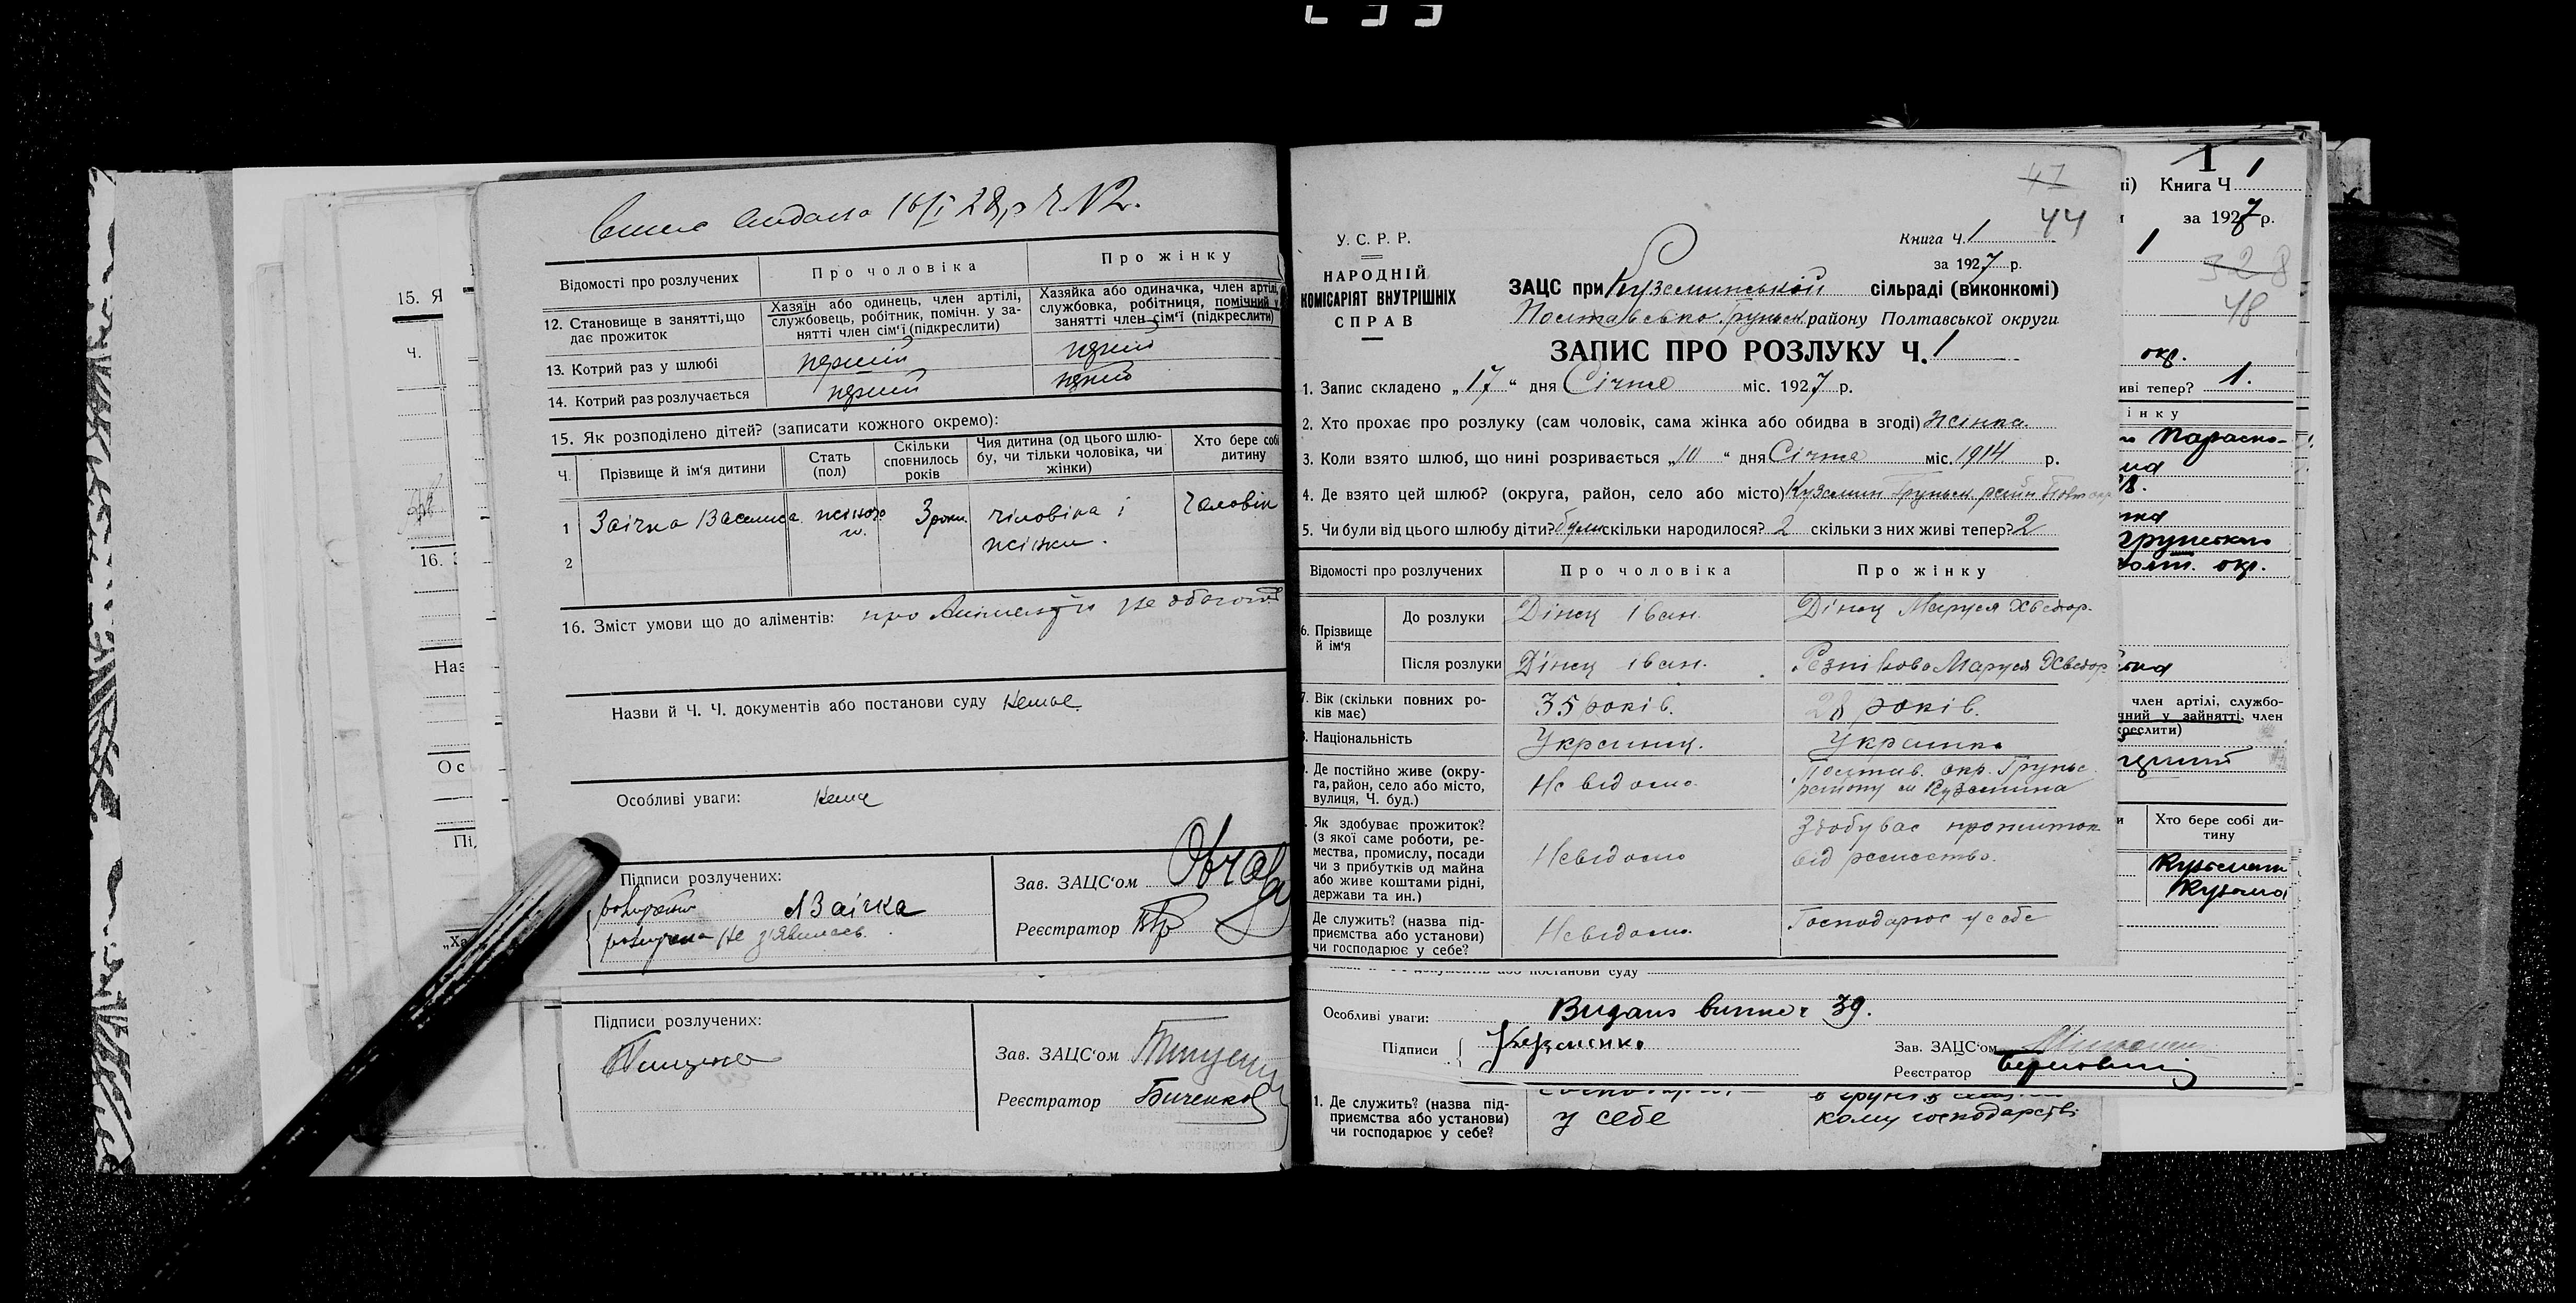 15. Я
Ч.
16.
Наз
Ос
Пі,
„Ха
видана 16/I 28 р Ч. №2.
Відомості про розлучених
Про чоловіка
Про жінку
12. Становище в занятті, що дає прожиток
Хазяїн або одинець, член артілі,
службовець, робітник, помічн. у за-
нятті член сім'ї (підкреслити)
Хазяйка або одиначка, член артілі,
службовка, робітниця, помічний у
занятті член сім'ї (підкреслити)
13. Котрий раз у шлюбі
перший
перший
14. Котрий раз розлучається
перший
перший
15. Як розподілено дітей? (записати кожного окремо):
Ч.
Прізвище й ім'я дитини
Стать
(пол)
Скільки
сповнилось
років
Чия дитина (од цього шлю-
бу, чи тільки чоловіка, чи
жінки)
Хто бере собі
дитину
1
Заічка Василиса
жіноч.
3 роки
чіловіка і
жінки.
Чаловік
2
16. Зміст умови що до аліментів:
про Аліменти не
Назви й Ч. Ч. документів або постанови суду
Немає
Особливі уваги:
Нема
Підписи розлучених:
Заічка
не зявилась.
Зав. ЗАЦС'ом
Реєстратор
Підписи розлучених:
Зав. ЗАЦС'ом
Реєстратор
Биченко
47
44
У. С. Р. Р.
НАРОДНІЙ
КОМІСАРІЯТ ВНУТРІШНІХ
СПРАВ
Книга Ч. 1
за 1927 р.
ЗАЦС при Куземинській сільраді (виконкомі)
району Полтавської округи
ЗАПИС ПРО РОЗЛУКУ Ч. 1
1. Запис складено „17“ дня Січня міс. 1927 р.
2. Хто прохає про розлуку (сам чоловік, сама жінка або обидва в згоді) жінка
3. Коли взято шлюб, що нині розривається „10“ дня Січня міс. 1914 р.
4. Де взято цей шлюб? (округа, район, село або місто) Куземин Груньск. район
5. Чи були від цього шлюбу діти? були скільки народилося? 2 скільки з них живі тепер? 2
Відомості про розлучених
Про чоловіка
Про жінку
6. Прізвище
й ім'я
До розлуки
Дінец Іван.
Дінец Маруся Хведор.
Після розлуки
Дінец Іван.
Резнікова Маруся Хведор.
7. Вік (скільки повних ро-
ків має)
35 років.
28 років.
Національність
Украинец.
Украинка
Де постійно живе (окру-
га, район, село або місто,
вулиця, Ч. буд.)
Не відомо.
Полтав. окр. Груньс.
району с. Куземина
Як здобуває прожиток?
(з якої саме роботи, ре-
мества, промислу, посади
чи з прибутків од майна
або живе коштами рідні,
держави та ин.)
Невідомо
Здобуває прожиток
від ремество.
Де служить? (назва під-
приємства або установи)
чи господарює у себе?
Невідомо.
Господарює у себе
документів або постанови суду
Особливі уваги:
Підписи
Зав. ЗАЦС'ом
Реєстратор
1. Де служить? (назва під-
приємства або установи)
чи господарює у себе?
у себе
кому господарстві
1
Книга Ч 1
за 1927 р.
1
328
48
окр.
иві тепер? 1.
інку
Параско-
окр.
член артілі, службо-
чний у зайнятті, член
креслити)
Хто бере собі ди-
тину